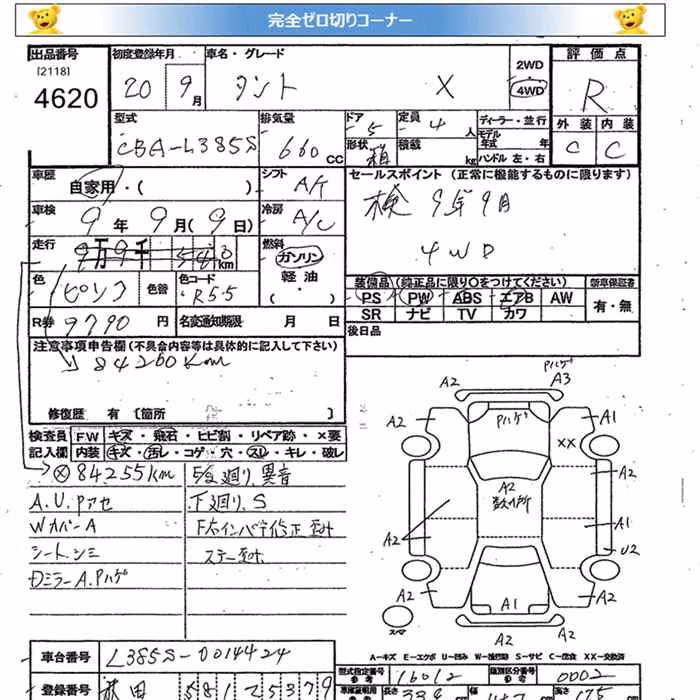 完全ゼロ切りコーナー
出品番号
[2118]
4620
初度登録年月
20 9月
車名・グレード
タント X
2WD
4WD
評価点
R
外装 内装
C C
型式
CBA-L385S
排気量
660 CC
ドア
5
定員
4 人
形状
箱
積載
kg
ディーラー・並行
モデル
年式 年
ハンドル 左・右
車歴
自家用・( )
シフト
A/T
セールスポイント (正常に機能するものに限ります)
検 9年9月
4WD
車検
9年 9月(9日)
冷房
A/C
走行
9万9千 543 km
燃料
ガソリン
軽油
・( )
色
ピンク 色替
色コード
R55
装備品 (純正品に限り○をつけてください) 新車保証書
PS PW ABS エアB AW
SR ナビ TV カワ
有・無
R券 9790 円
名変通知期限 月 日
後日品
注意事項申告欄(不具合内容等は具体的に記入して下さい)
84260km
修復歴 有 〔箇所 〕
検査員
記入欄
FW キズ・飛石・ヒビ割・リペア跡・×要
内装 キズ・汚レ・コゲ・穴・スレ・キレ・破レ
84255km
A.U.Pアセ
WカバーA
シートシミ
DミラーA.Pハゲ
下廻り.S
ステー
A2
Pハゲ
A3
A2
Pハゲ
A1
××
A2
A2
数ヶ所
A2
A1
A2
U2
A2
A1
A2
A2
A2
スペア
A-キズ E-エクボ U-凹み W-補修跡 S-サビ C-腐食 XX-交換済
車台番号
L385S-0014424
型式指定番号
参考
16012
類別区分番号
参考
0002
登録番号
581
5379
長さ
339